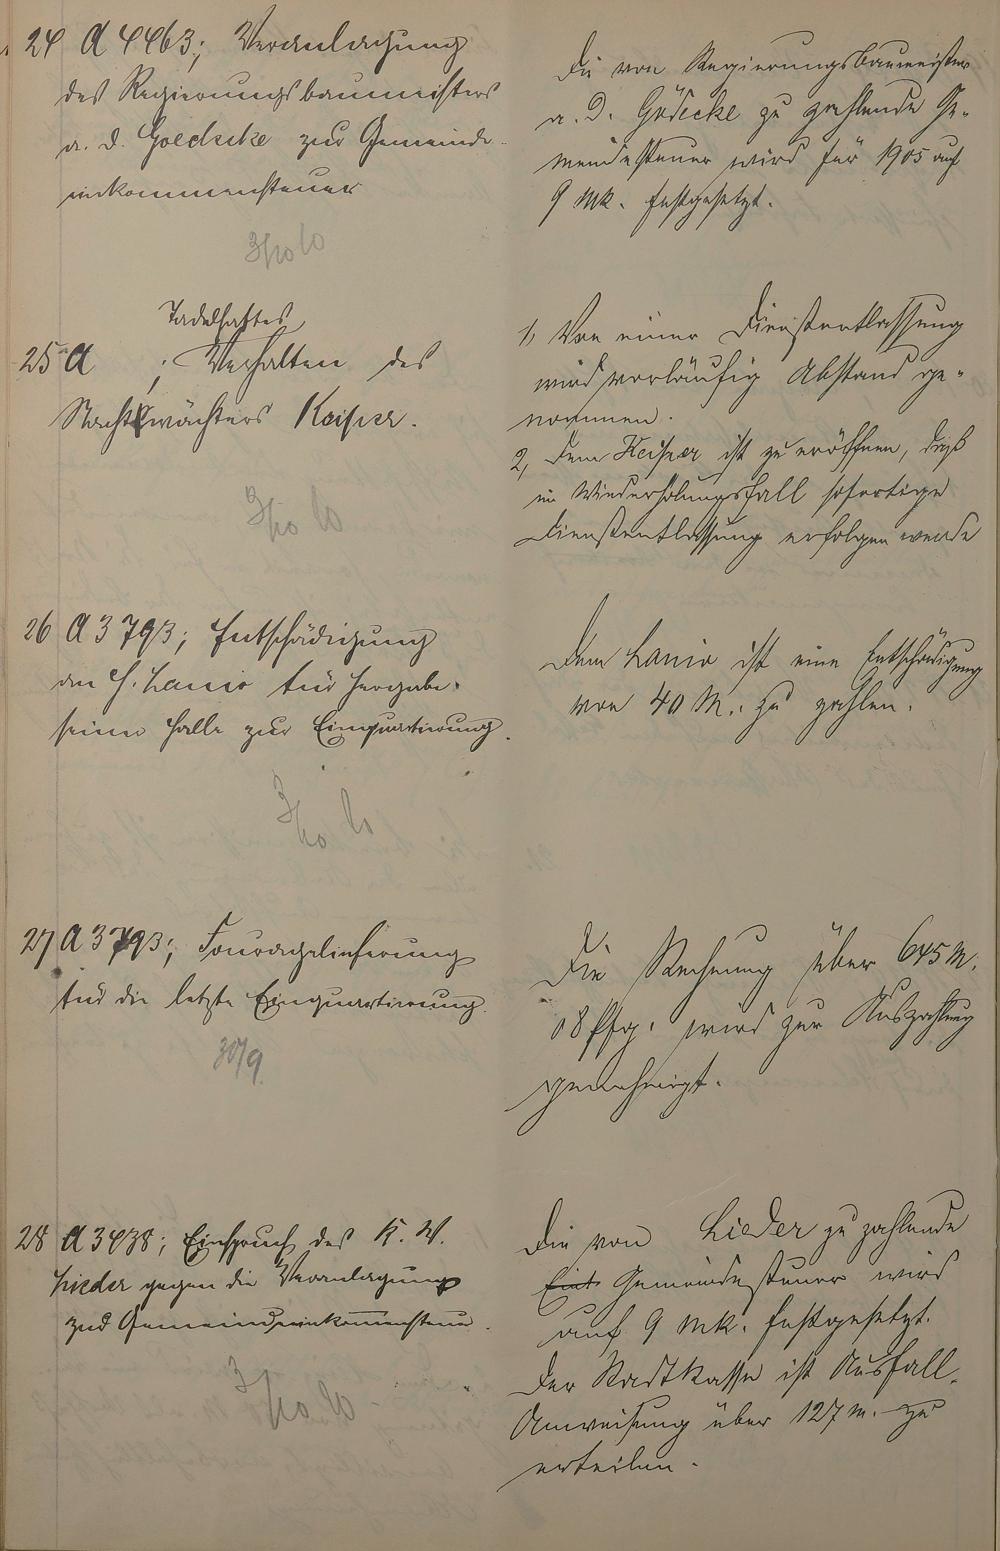 24 A 4463; Veranlagung
des Regierungsbaumeisters
a. D. Goedecke zur Gemeinde-
einkommensteuer
3/10 10
Die von Regierungsbaumeister
a. D. Gödecke zu zahlende Ge-
meindesteuer wird für 1905 auf
9 Mk. festgesetzt.
Tadelhaftes
25 A ; Verhalten des
Nachtwächters Keiser.
3/10 10
1, Von einer Dienstentlassung
wird vorläufig Abstand ge-
nommen.
2, Dem Keiser ist zu eröffnen, daß
im Wiederholungsfall sofortige
Dienstentlassung erfolgen werde
26 A 3793; Entschädigung
an H. Lanio für Hergabe
seiner Halle zur Einquartierung.
3/10 10
Dem Lanio ist eine Entschädigung
von 40 M. zu zahlen.
27 A 3793; Fouragelieferung
für die letzte Einquartierung.
30/9.
Die Rechnung über 645 M.
08 Pfg. wird zur Auszahlung
genehmigt.
28 A 3438; Einspruch des K. W.
Lieder gegen die Veranlagung
zur Gemeindeeinkommensteuer.
3/10 10
Die von Lieder zu zahlende
Eink Gemeindesteuer wird
auf 9 Mk. festgesetzt.
Der Stadtkasse ist Ausfall-
Anweisung über 127 M. zu
erteilen.